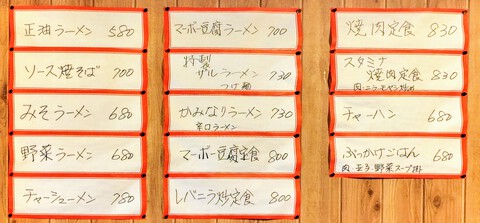 正油ラーメン 580
ソース焼そば 700
みそラーメン 680
野菜ラーメン 680
チャーシューメン 780
マーボー豆腐ラーメン 700
特製
ザルラーメン 730
つけ麺
かみなりラーメン 730
辛口ラーメン
マーボー豆腐定食 800
レバニラ炒定食 800
焼肉定食 830
スタミナ
焼肉定食 830
肉・ニラ・モヤシ炒め
チャーハン 680
ぶっかけごはん 680
肉・玉子・野菜スープ掛